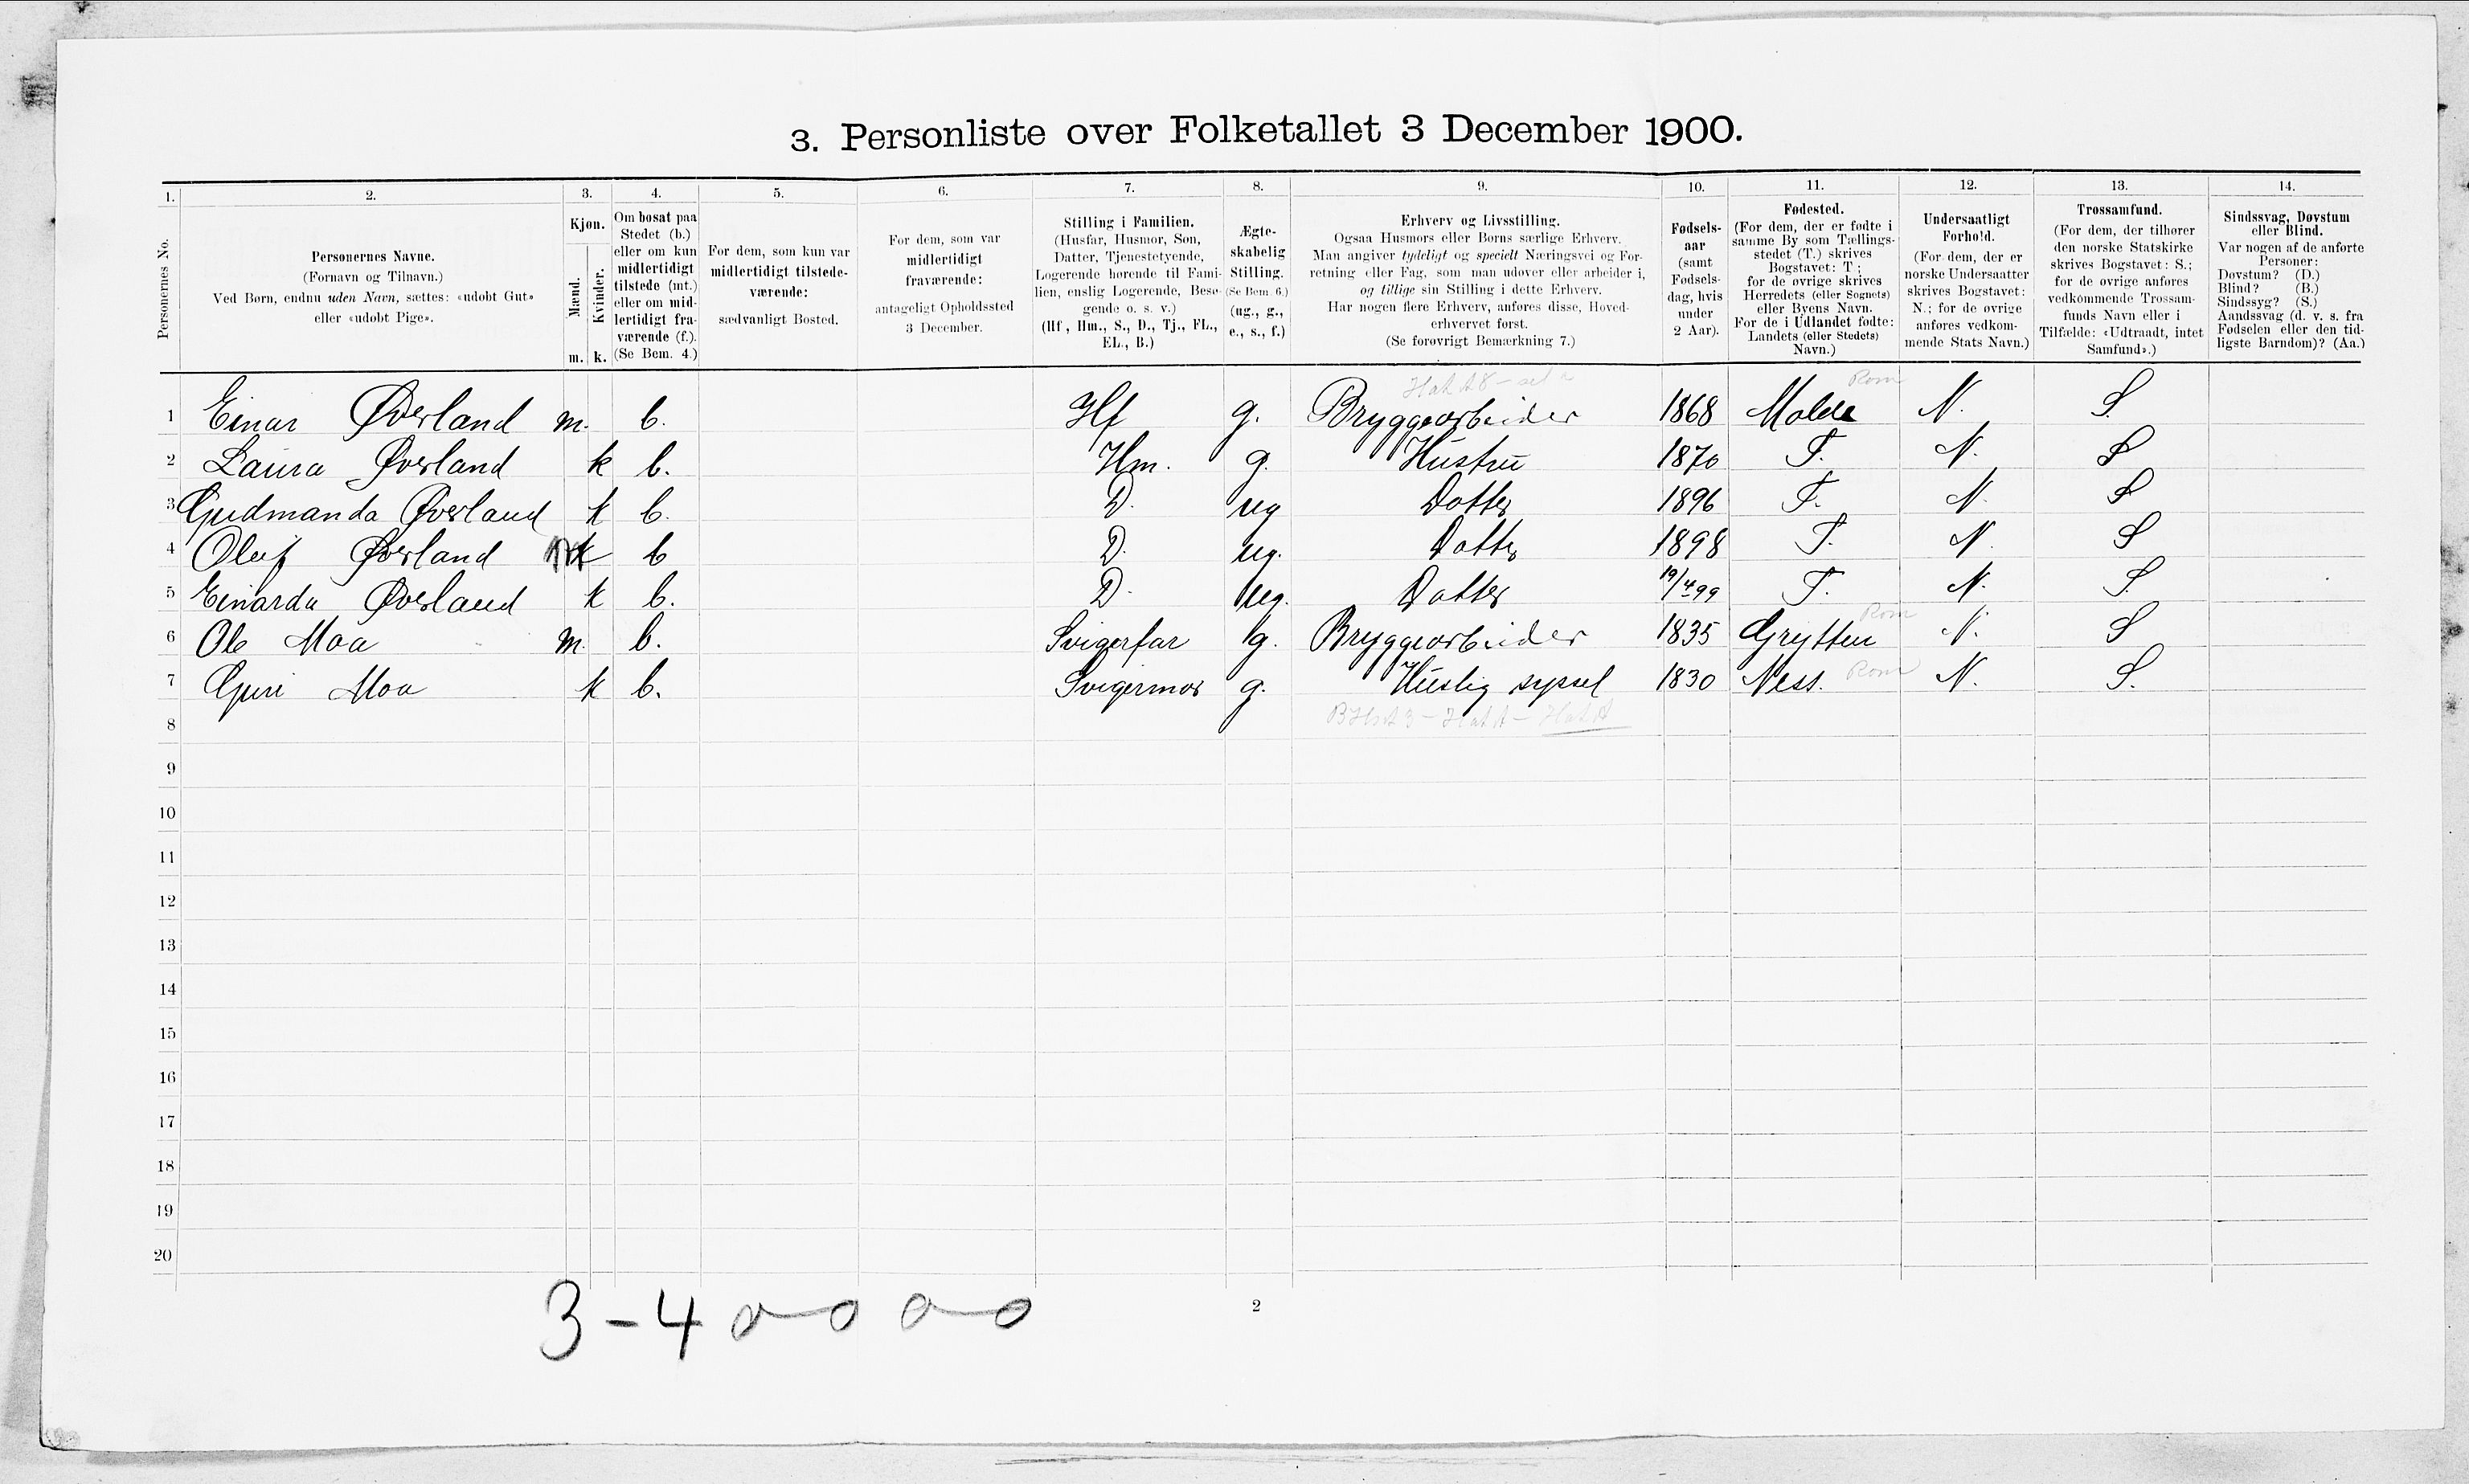 3. Personliste over Folketallet 3 December 1900.
1. 2. 3. 4. 5. 6. 7. 8. 9. 10. 11. 12. 13. 14.
Personernes No.
Personernes Navne.
(Fornavn og Tilnavn.)
Ved Børn, endnu uden Navn, sættes: «udøbt Gut»
eller «udøbt Pige».
Kjøn.
Mænd.
Kvinder.
m. k.
Om bosat paa
Stedet (b.)
eller om kun
midlertidigt
tilstede (mt.)
eller om mid-
lertidigt fra-
værende (f.).
(Se Bem. 4.)
For dem, som kun var
midlertidigt tilstede-
værende:
sædvanligt Bosted.
For dem, som var
midlertidigt
fraværende:
antageligt Opholdssted
3 December.
Stilling i Familien.
(Husfar, Husmor, Søn,
Datter, Tjenestetyende,
Logerende hørende til Fami-
lien, enslig Logerende, Besø-
gende o. s. v.)
(Hf, Hm., S., D., Tj., FL.,
EL., B.)
Ægte-
skabelig
Stilling.
(Se Bem. 6.)
(ug., g.,
e., s., f.)
Erhverv og Livsstilling.
Ogsaa Husmors eller Børns særlige Erhverv.
Man angiver tydeligt og specielt Næringsvei og For-
retning eller Fag, som man udøver eller arbeider i,
og tillige sin Stilling i dette Erhverv.
Har nogen flere Erhverv, anføres disse, Hoved-
erhvervet først.
(Se forøvrigt Bemærkning 7.)
Fødsels-
aar
(samt
Fødsels-
dag, hvis
under
2 Aar).
Fødested.
(For dem, der er fødte i
samme By som Tællings-
stedet (T.) skrives
Bogstavet: T;
for de øvrige skrives
Herredets (eller Sognets)
eller Byens Navn.
For de i Udlandet fødte:
Landets (eller Stedets)
Navn.)
Undersaatligt
Forhold.
(For dem, der er
norske Undersaatter
skrives Bogstavet:
N.; for de øvrige
anføres vedkom-
mende Stats Navn.)
Trossamfund.
(For dem, der tilhører
den norske Statskirke
skrives Bogstavet: S.;
for de øvrige anføres
vedkommende Trossam-
funds Navn eller i
Tilfælde: «Udtraadt, intet
Samfund».)
Sindssvag, Døvstum
eller Blind.
Var nogen af de anførte
Personer:
Døvstum? (D.)
Blind? (B.)
Sindssyg? (S.)
Aandssvag (d. v. s. fra
Fødselen eller den tid-
ligste Barndom)? (Aa.)
Rom
1 Einar Øverland m. b. Hf g. Bryggearbeider 1868 Molde N. S.
2 Laura Øverland k b. Hm. g. Hustru 1870 T. N. S
3 Gudmanda Øverland k b. D. ug Datter 1896 T. N. S
4 Oluf Øverland k b D. ug. Datter 1898 T. N. S
5 Einarda Øverland k b. D. ug. Datter 19/4 99 T. N. S.
Rom
6 Ole Moa m. b. Svigerfar g. Bryggearbeider 1835 Grytten N. S
7 Guri Moa k b. Svigermor g. Huslig syssel 1830 Ness. Rom N. S.
8
9
10
11
12
13
14
15
16
17
18
19
20
3-4 0-0 0-0
2